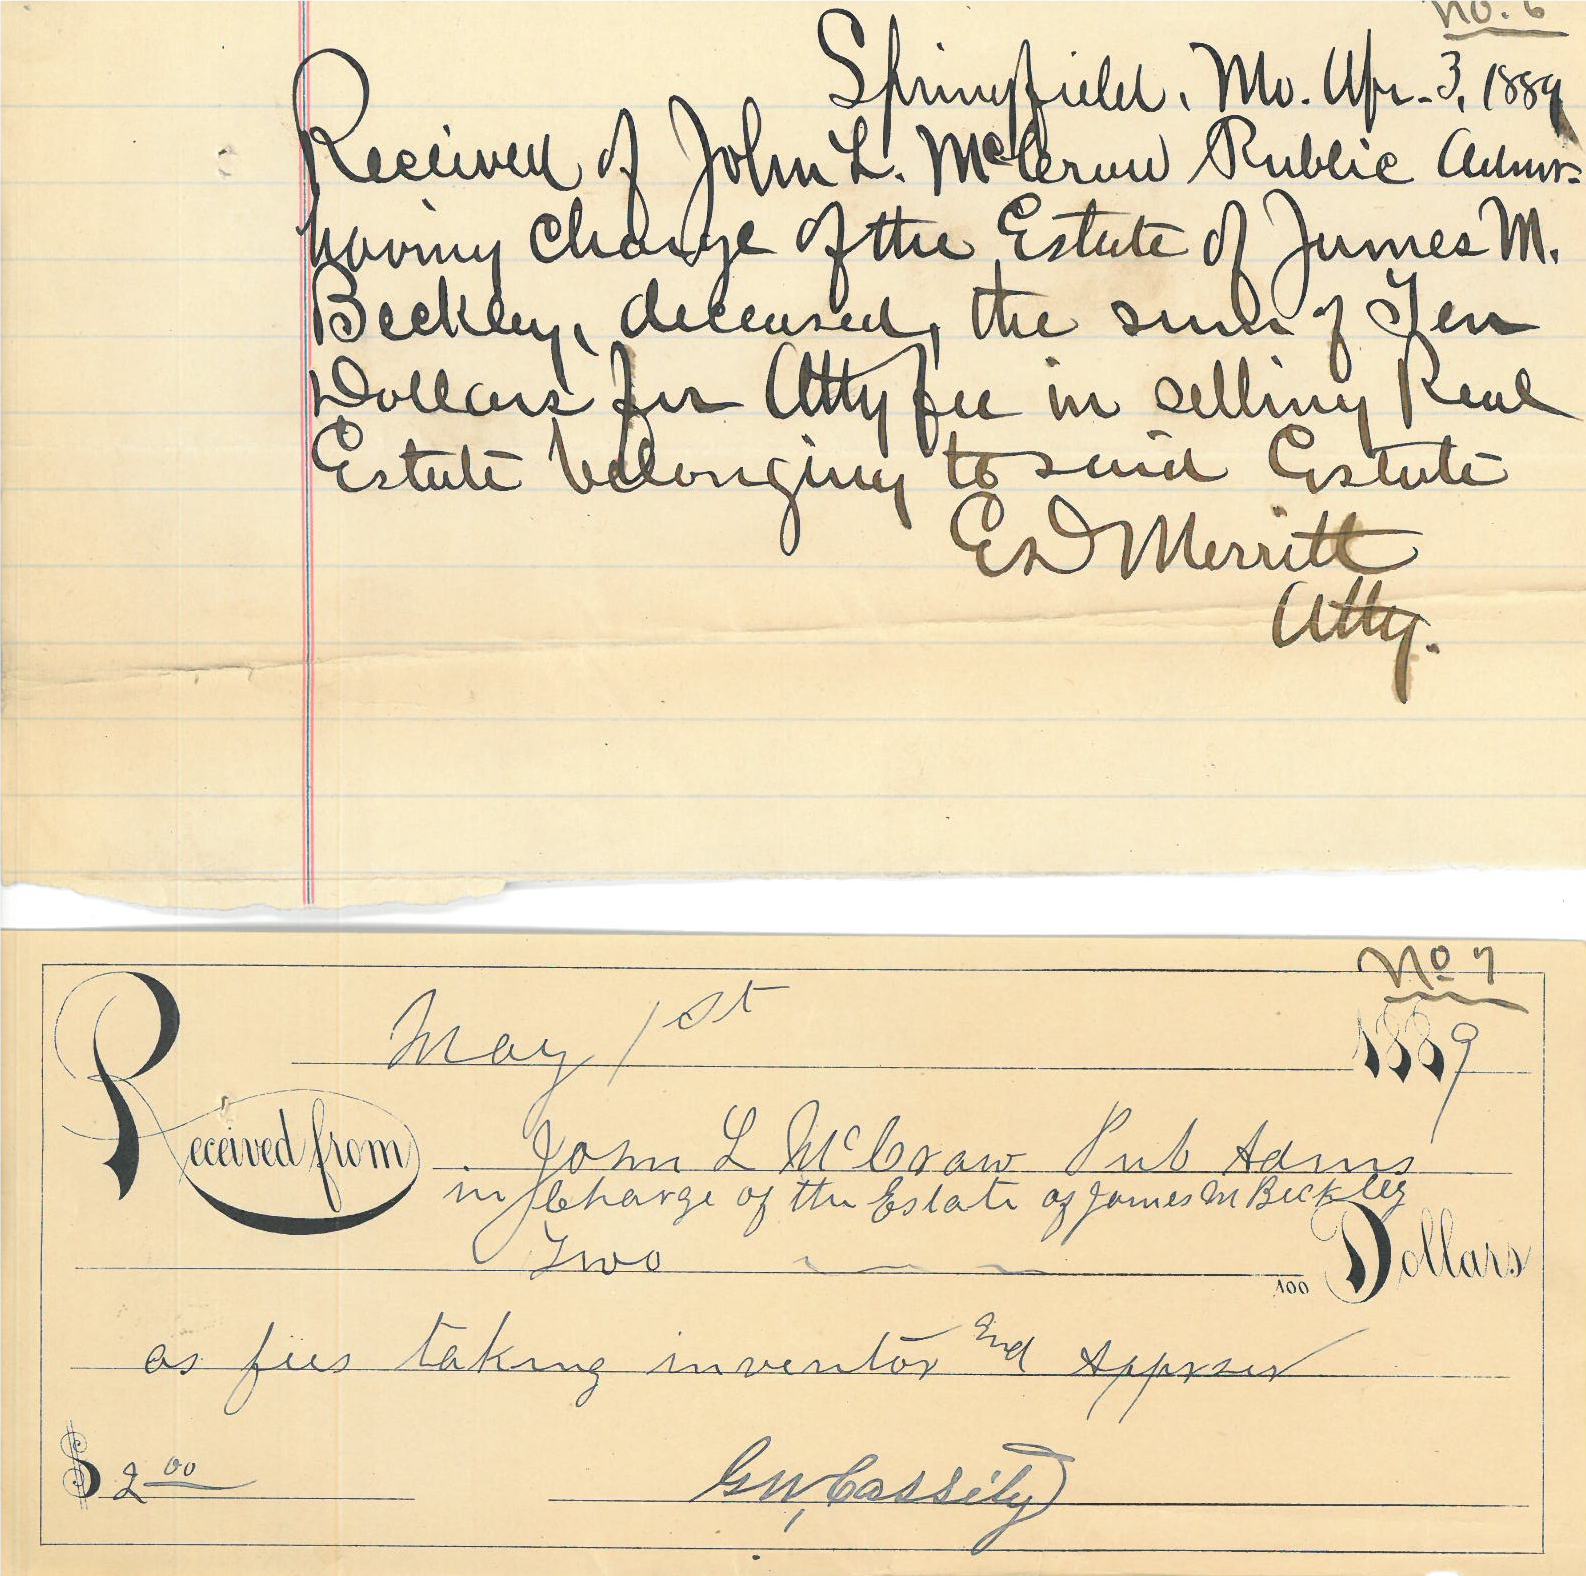 No. 6
Springfield, Mo. Apr. 3, 1889
Received of John L. McCraw Public Admr.
having charge of the Estate of James M.
Beckley, deceased, the sum of Ten
Dollars for Atty fee in selling Real
Estate belonging to said Estate
E D Merritt
Atty.
No 7
May 1st 1889
Received from John L McCraw Pub Adms
in Charge of the Estate of James M Beckley
Two 100 Dollars
as fees taking inventor and Apprser
$ 2 00
GW Cassity